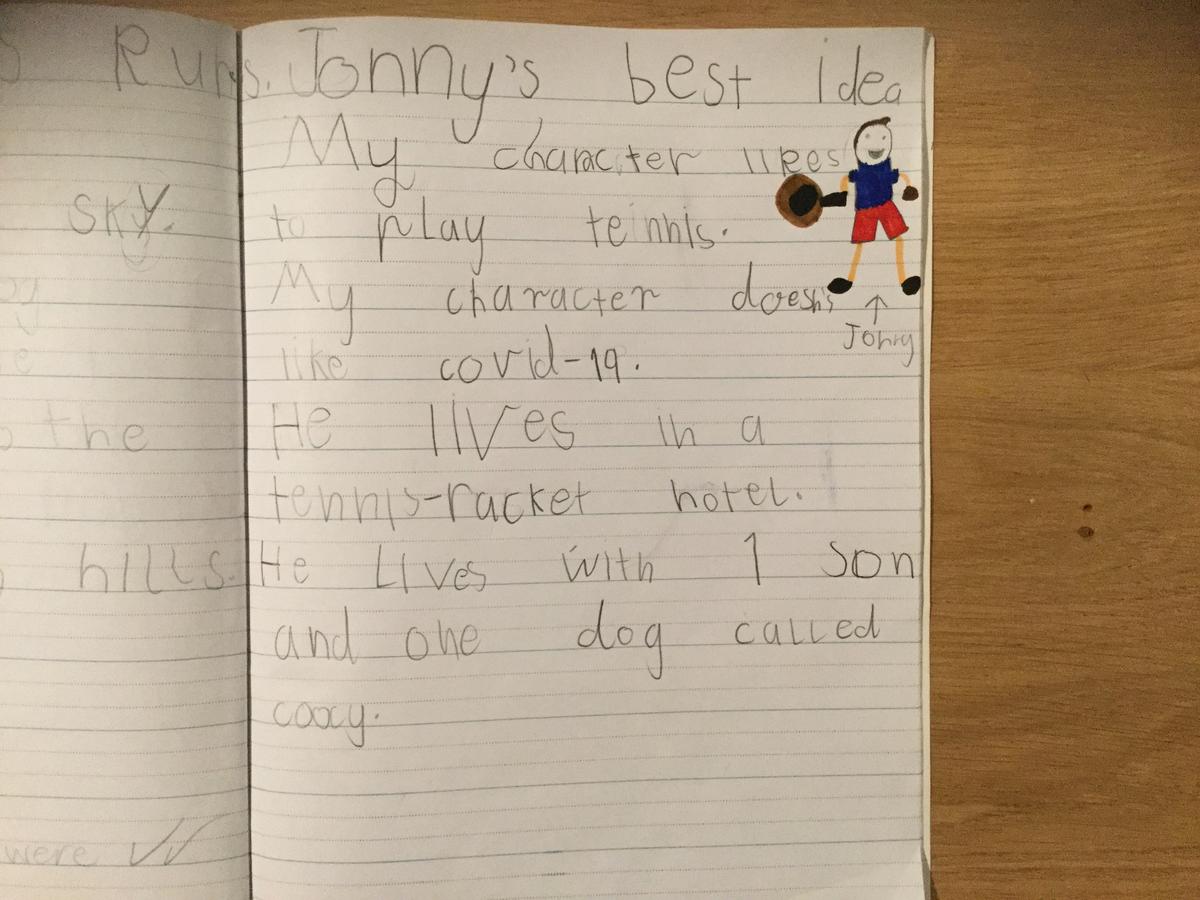 Runs.
sky.
the
hills.
were
Jonny's best idea
My character likes
to play teinnis.
My character doesn's
like covid-19.
He lives in a
tennis-racket hotel.
He Lives with 1 son
and one dog called
cooxy.
Jonny